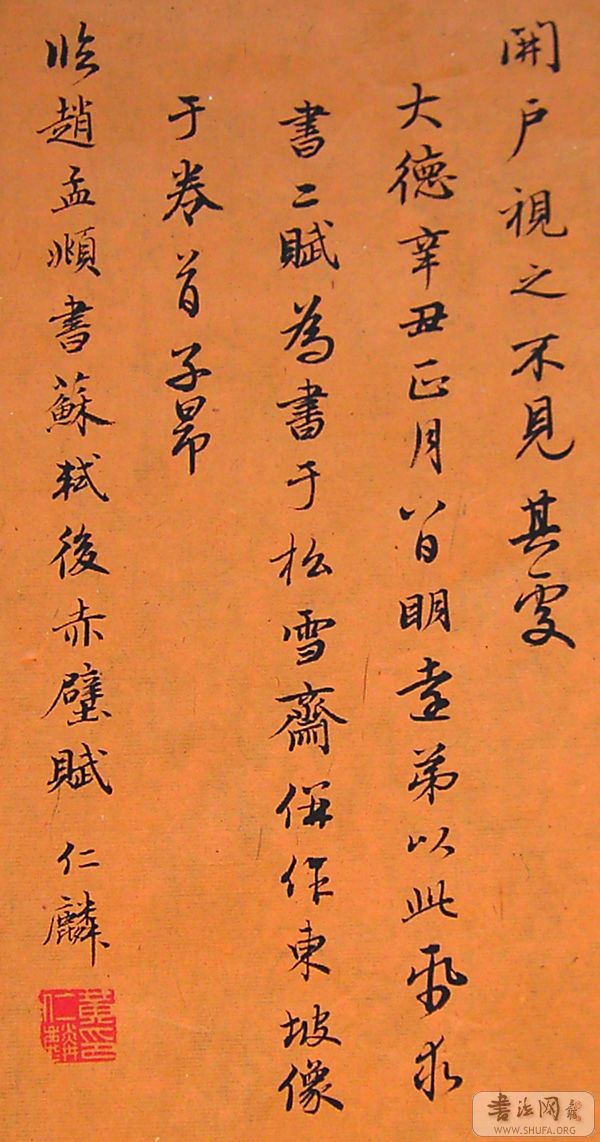 開户視之不見其處
大德辛丑正月八日明遠弟以此紙求
書二賦為書于松雪齋併作東坡像
于卷首子昂
臨趙孟頫書蘇軾後赤壁賦 仁麟
書法网
WWW.SHUFA.ORG